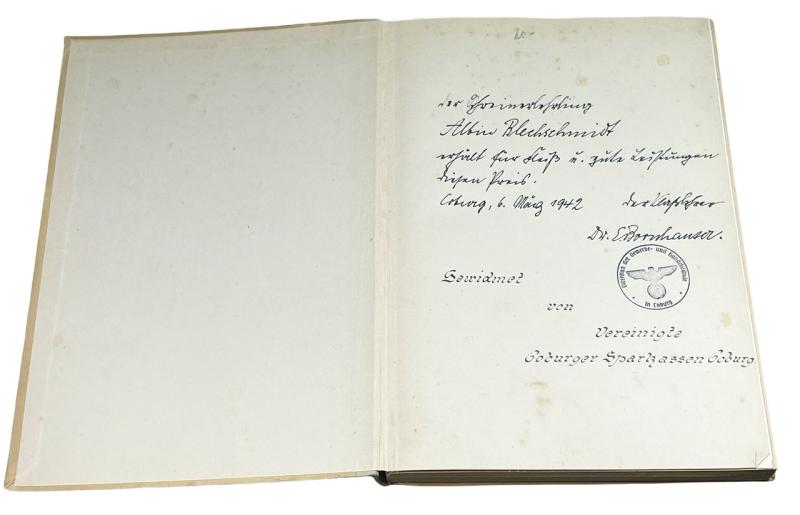 20-
Der Schreinerlehrling
Albin Blechschmidt
erhält für Fleiß u. gute Leistungen
diesen Preis.
Coburg, 6. März 1942 Der Klaßlehrer
Dr. E. Bornhauser.
Direktion der Gewerbe- und Handelsschule
in Coburg
Gewidmet
von
Vereinigte
Coburger Sparkassen Coburg